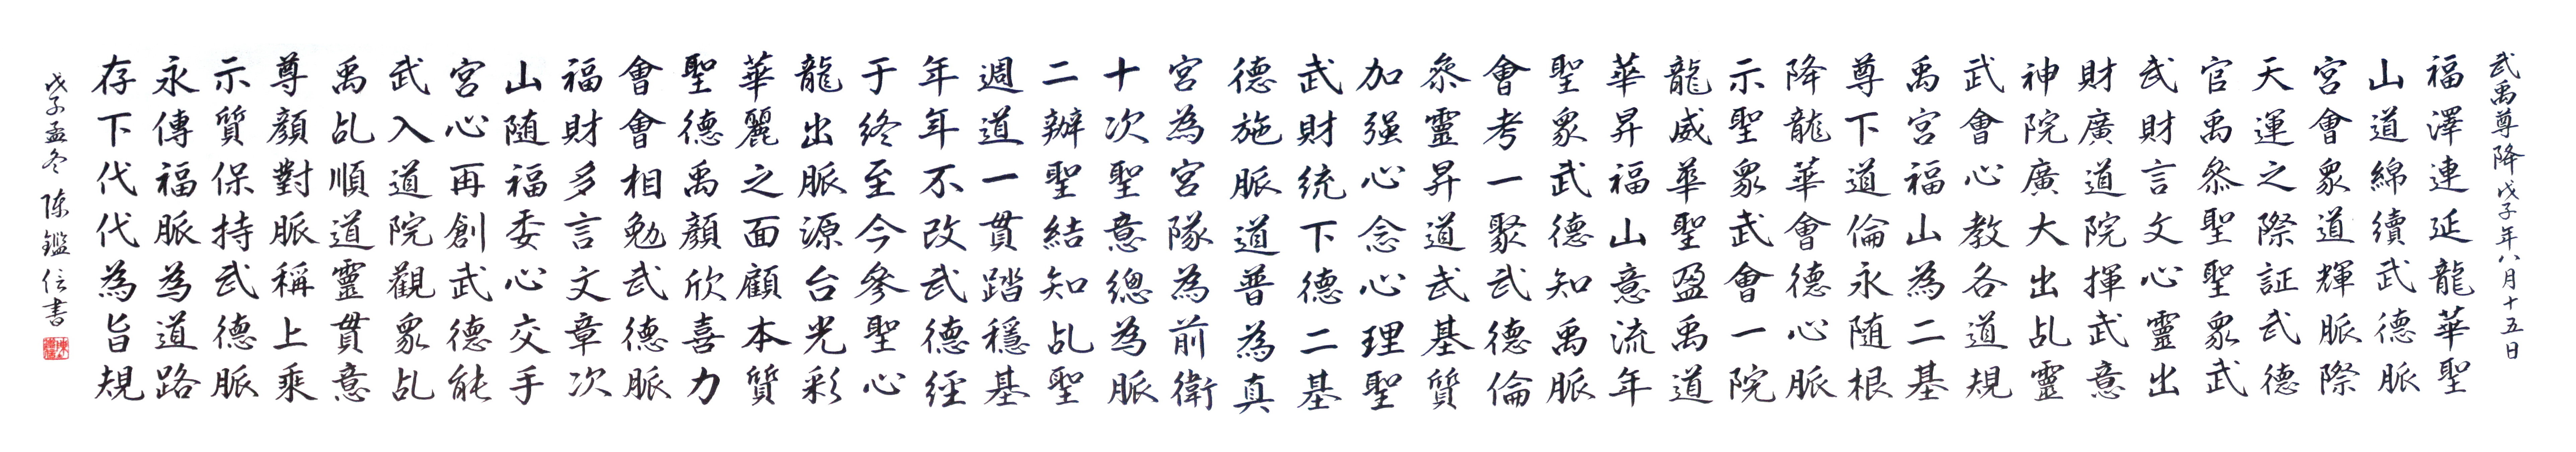 武禹尊降戊子年八月十五日
福澤連延龍華聖
山道綿續武德脈
宮會眾道輝脈際
天運之際証武德
官禹叅聖聖眾武
武財言文心靈出
財廣道院揮武意
神院廣大出乩靈
武會心教各道規
禹宮福山為二基
尊下道倫永随根
降龍華會德心脈
示聖眾武會一院
龍威華聖盈禹道
華昇福山意流年
聖眾武德知禹脈
會考一聚武德倫
叅靈昇道武基質
加强心念心理聖
武財統下德二基
德施脈道普為真
宮為宮隊為前衛
十次聖意總為脈
二辦聖結知乩聖
週道一貫踏穩基
年年不改武德經
于終至今參聖心
龍出脈源台光彩
華麗之面顧本質
聖德禹顏欣喜力
會會相勉武德脈
福財多言文章次
山随福委心交手
宮心再創武德能
武入道院觀眾乩
禹乩順道靈貫意
尊顏對脈稱上乘
示質保持武德脈
永傳福脈為道路
存下代代為旨規
戊子孟冬 陳鑑信書